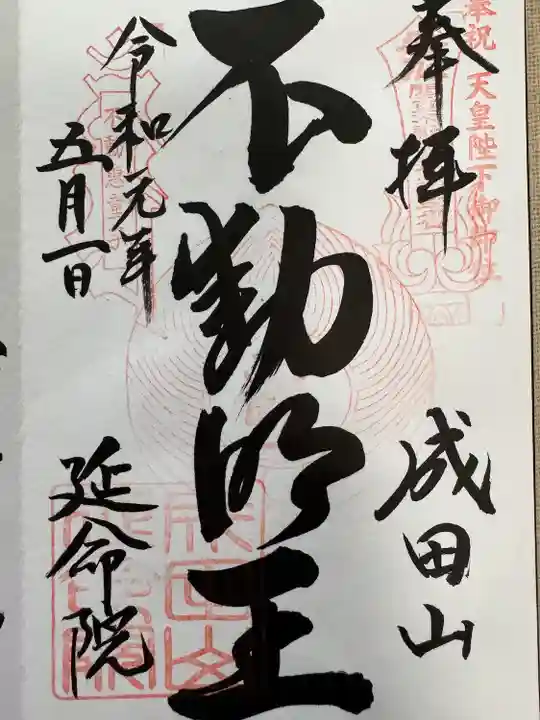 奉祝 天皇陛下御即位
奉拝
成田山
不動明王
令和元年
五月一日
延命院